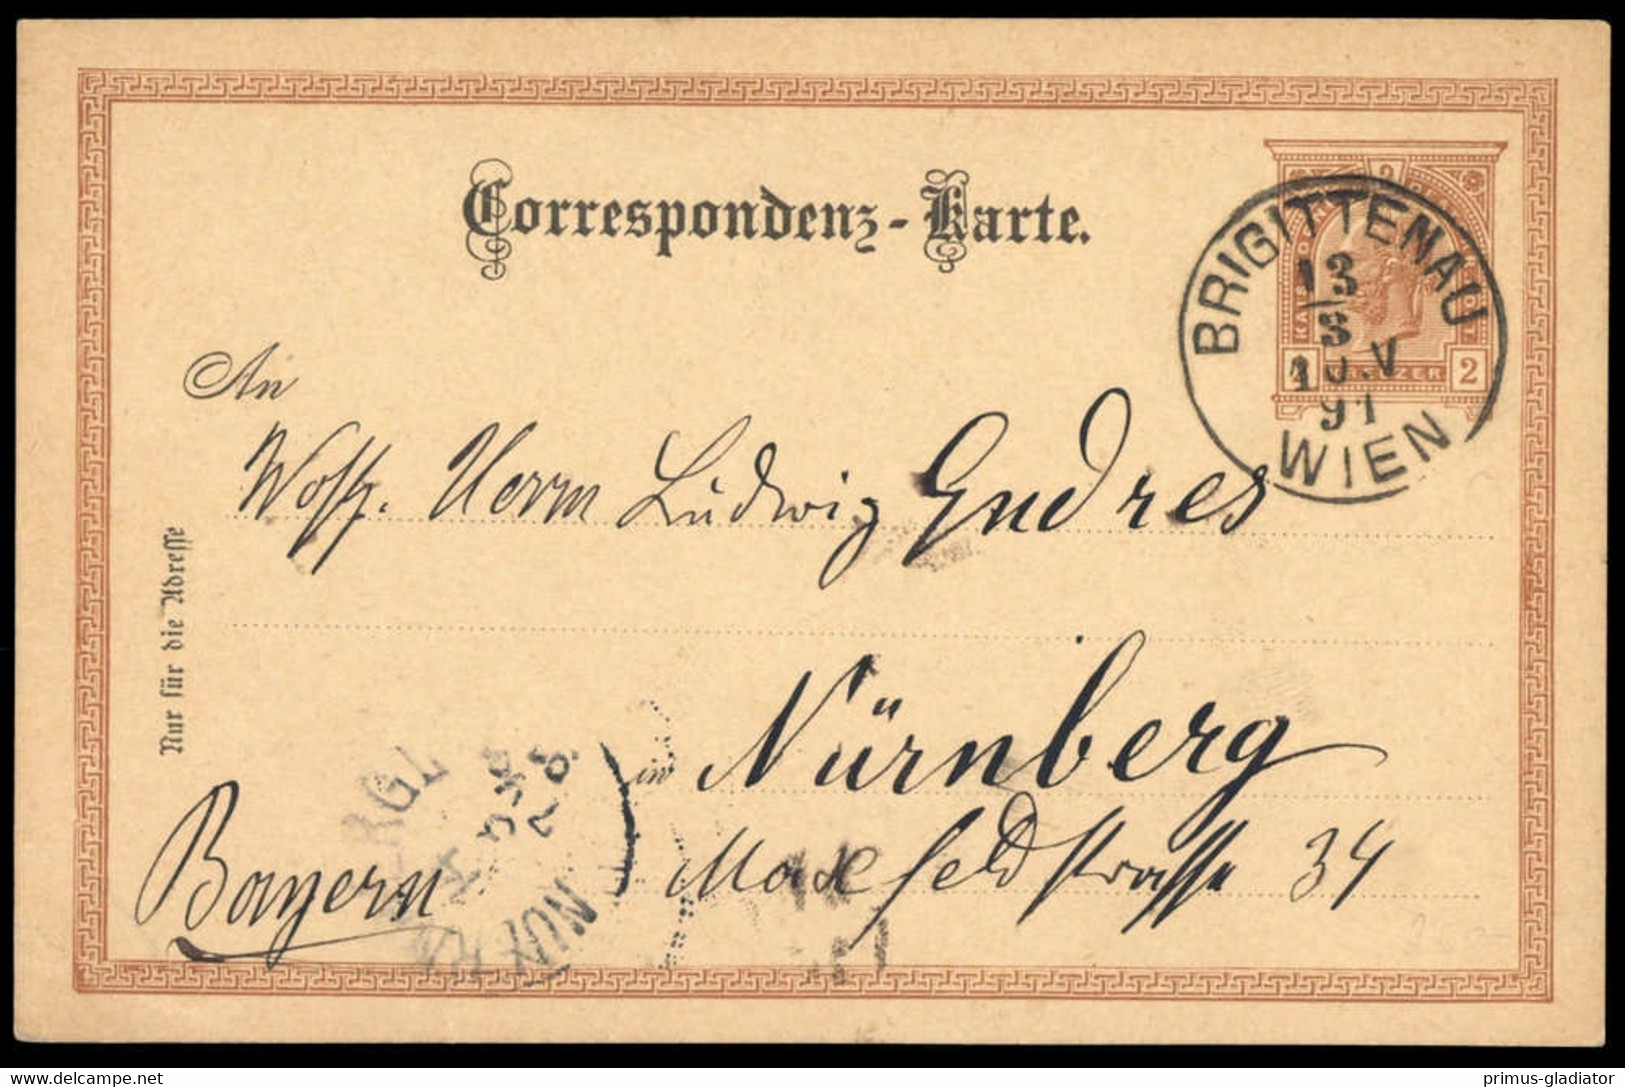 Correspondenz-Karte.
2
2
BRIGITTENAU
13
8
10.V
91
WIEN
An
Herrn Ludwig Endres
in Nürnberg
Maxfeldstrasse 34
Bayern
Nur für die Adresse
delcampe.net
primus-gladiator